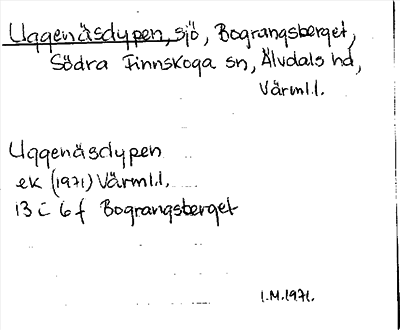 Uggenäsdypen, sjö, Bograngsberget,
Södra Finnskoga sn, Älvdals hd,
Värml.l.
Uggenäsdypen
ek (1971) Värml.l.
13 C 6 f Bograngsberget
I.M.1971.